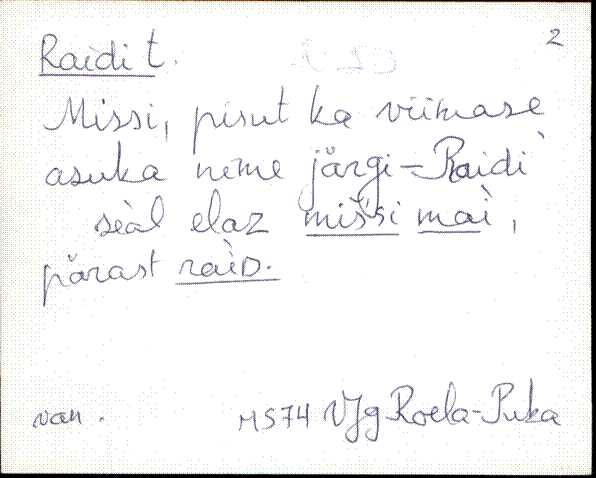 2
Raìdi t.
Missi, pisut ka viimase
asuka nime järgi - Raidì
seàl elaz miš́si maì,
pärast raìD.
van. MS74 VJg Roela-Puka